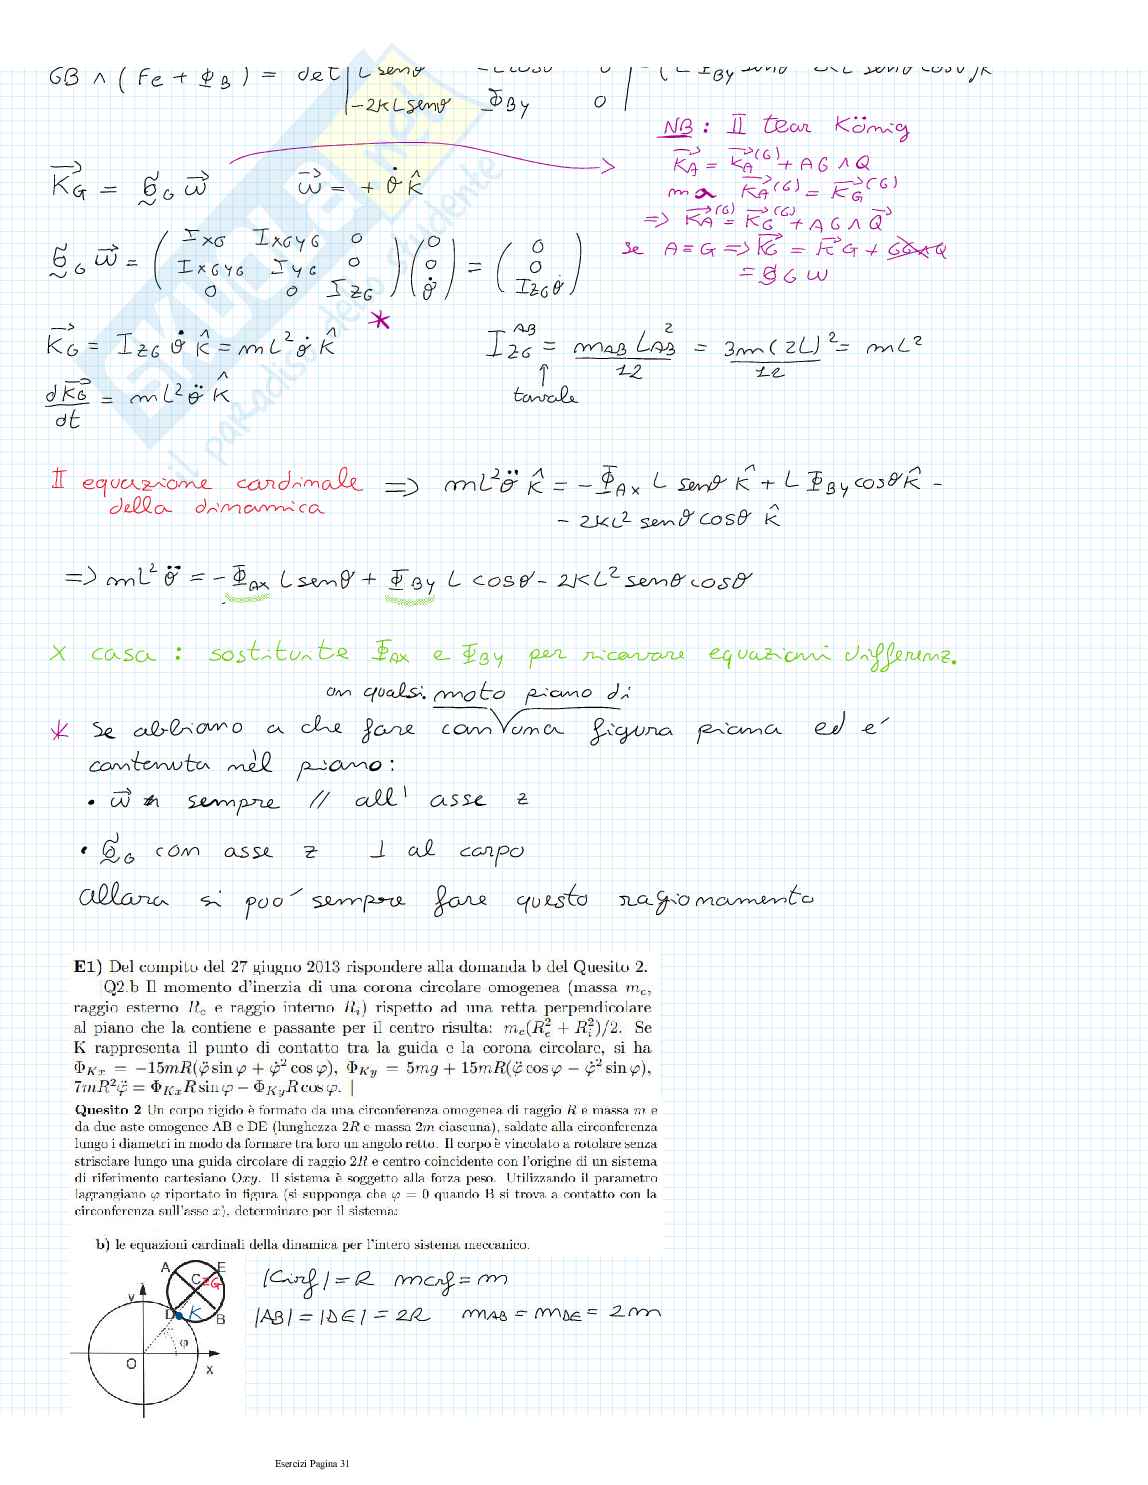 GB ∧ ( Fe + Φ_B ) = det | L senθ -L cosθ 0 |
|-2KL senθ Φ_By 0 |
NB : II teor König
K_A = K_A^(G) + AG ∧ Q
ma K_A^(G) = K_G^(G)
=> K_A^(G) = K_G^(G) + AG ∧ Q
se A ≡ G => K_G = K_G + GG∧Q
= σ_G ω
K_G = σ_G ω ω = + θ̇ k̂
σ_G ω = ( I_xG I_xGyG 0 ) ( 0 ) = ( 0 )
( I_xGyG I_yG 0 ) ( 0 ) ( 0 )
( 0 0 I_zG ) ( θ̇ ) ( I_zG θ̇ )
K_G = I_zG θ̇ k̂ = mL² θ̇ k̂ *
I_zG^AB = m_AB L_AB² / 12 = 3m(2L)² / 12 = mL²
↑
tavole
dK_G / dt = mL² θ̈ k̂
II equazione cardinale => mL² θ̈ k̂ = - Φ_Ax L senθ k̂ + L Φ_By cosθ k̂ -
della dinamica
- 2KL² senθ cosθ k̂
=> mL² θ̈ = - Φ_Ax L senθ + Φ_By L cosθ - 2KL² senθ cosθ
X casa : sostituite Φ_Ax e Φ_By per ricavare equazioni differenz.
un qualsi. moto piano di
* se abbiamo a che fare con una figura piana ed è
contenuta nel piano:
• ω sempre // all' asse z
• σ_G con asse z ⊥ al corpo
allora si può sempre fare questo ragionamento
E1) Del compito del 27 giugno 2013 rispondere alla domanda b del Quesito 2.
Q2.b Il momento d'inerzia di una corona circolare omogenea (massa m_c,
raggio esterno R_e e raggio interno R_i) rispetto ad una retta perpendicolare
al piano che la contiene e passante per il centro risulta: m_c(R_e² + R_i²)/2. Se
K rappresenta il punto di contatto tra la guida e la corona circolare, si ha
Φ_Kx = −15mR(φ̈ sin φ + φ̇² cos φ), Φ_Ky = 5mg + 15mR(φ̈ cos φ − φ̇² sin φ),
7mR²φ̈ = Φ_Kx R sin φ − Φ_Ky R cos φ. |
Quesito 2 Un corpo rigido è formato da una circonferenza omogenea di raggio R e massa m e
da due aste omogenee AB e DE (lunghezza 2R e massa 2m ciascuna), saldate alla circonferenza
lungo i diametri in modo da formare tra loro un angolo retto. Il corpo è vincolato a rotolare senza
strisciare lungo una guida circolare di raggio 2R e centro coincidente con l'origine di un sistema
di riferimento cartesiano Oxy. Il sistema è soggetto alla forza peso. Utilizzando il parametro
lagrangiano φ riportato in figura (si supponga che φ = 0 quando B si trova a contatto con la
circonferenza sull'asse x), determinare per il sistema:
b) le equazioni cardinali della dinamica per l'intero sistema meccanico.
A E
C≡G
y D K B
φ
O x
|Circf| = R mcrf = m
|AB| = |DE| = 2R m_AB = m_DE = 2m
SKUOLA.net
il paradiso dello studente
Esercizi Pagina 31